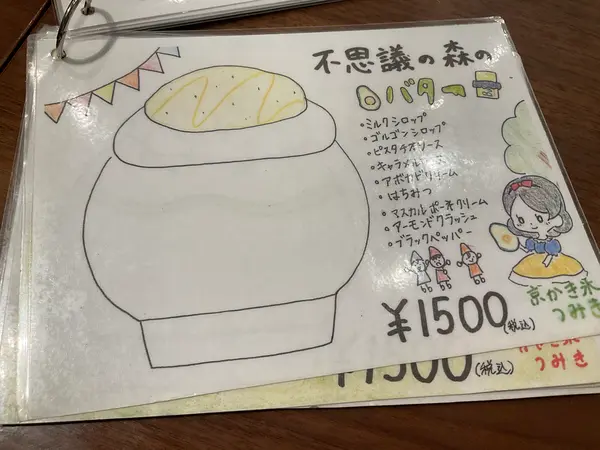 不思議の森の
バター
・ミルクシロップ
・ゴルゴンシロップ
・ピスタチオソース
・キャラメル
・アボカドクリーム
・はちみつ
・マスカルポーネクリーム
・アーモンドクラッシュ
・ブラックペッパー
¥1500(税込)
京かき氷
つみき
¥1500(税込)
つみき